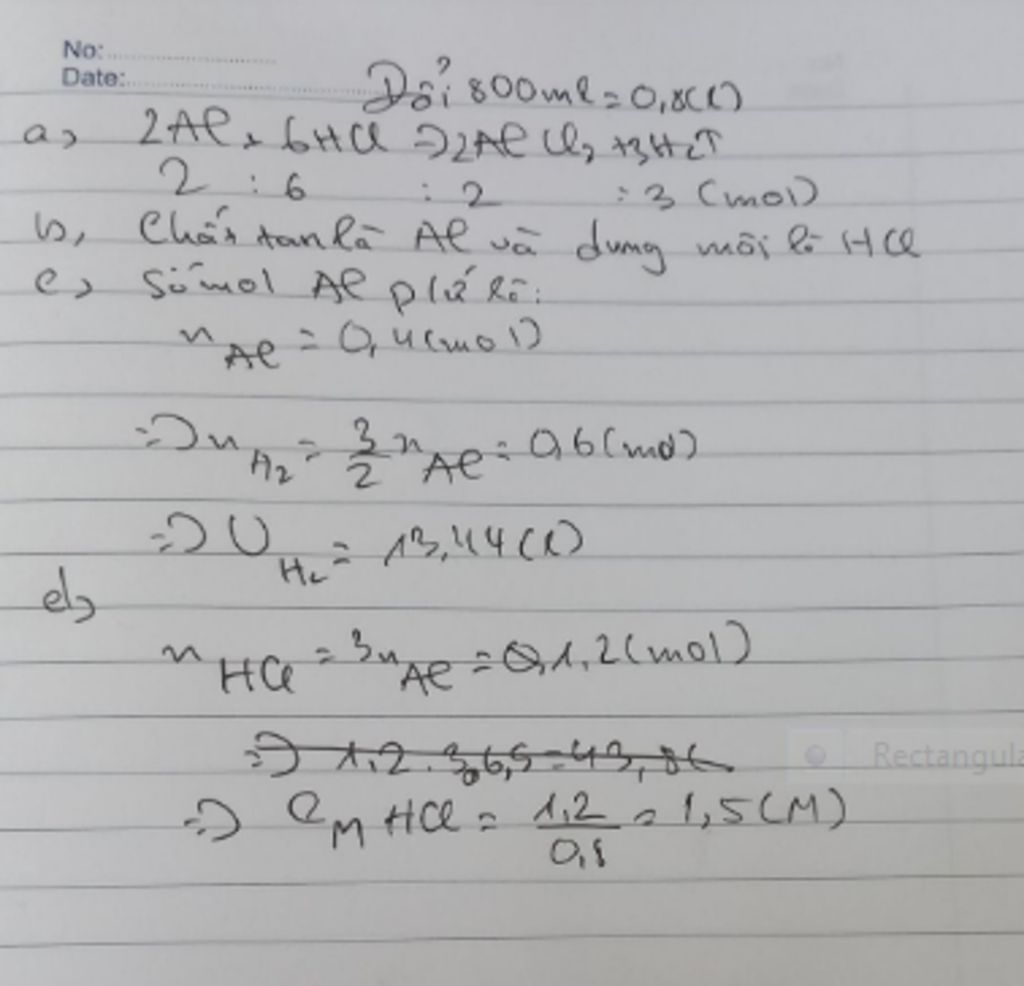 No:
Date:
Đổi 800ml = 0,8(l)
a, 2Al + 6HCl => 2AlCl3 + 3H2↑
2 : 6 : 2 : 3 (mol)
b, Chất tan là Al và dung môi là HCl
c, Số mol Al p/ứ là:
nAl = 0,4 (mol)
=> nH2 = 3/2 nAl = 0,6 (mol)
=> VH2 = 13,44 (l)
d,
nHCl = 3nAl = 1.2 (mol)
=> 1.2 . 36,5 = 43,8
Rectangula
=> CM HCl = 1,2/0,8 = 1,5 (M)